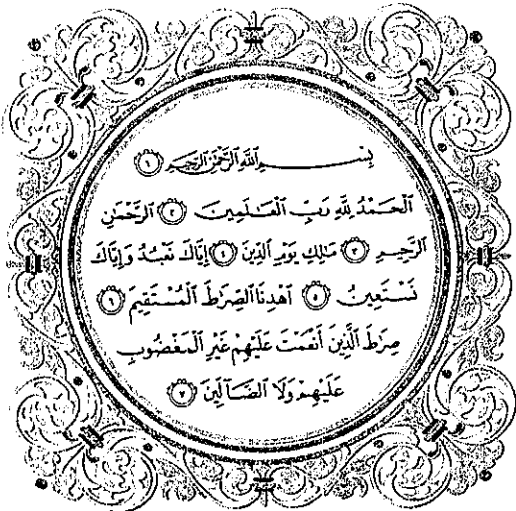 بِسْمِ اللَّهِ الرَّحْمَٰنِ الرَّحِيمِ ١
الْحَمْدُ لِلَّهِ رَبِّ الْعَالَمِينَ ٢ الرَّحْمَٰنِ
الرَّحِيمِ ٣ مَالِكِ يَوْمِ الدِّينِ ٤ إِيَّاكَ نَعْبُدُ وَإِيَّاكَ
نَسْتَعِينُ ٥ اهْدِنَا الصِّرَاطَ الْمُسْتَقِيمَ ٦
صِرَاطَ الَّذِينَ أَنْعَمْتَ عَلَيْهِمْ غَيْرِ الْمَغْضُوبِ
عَلَيْهِمْ وَلَا الضَّالِّينَ ٧